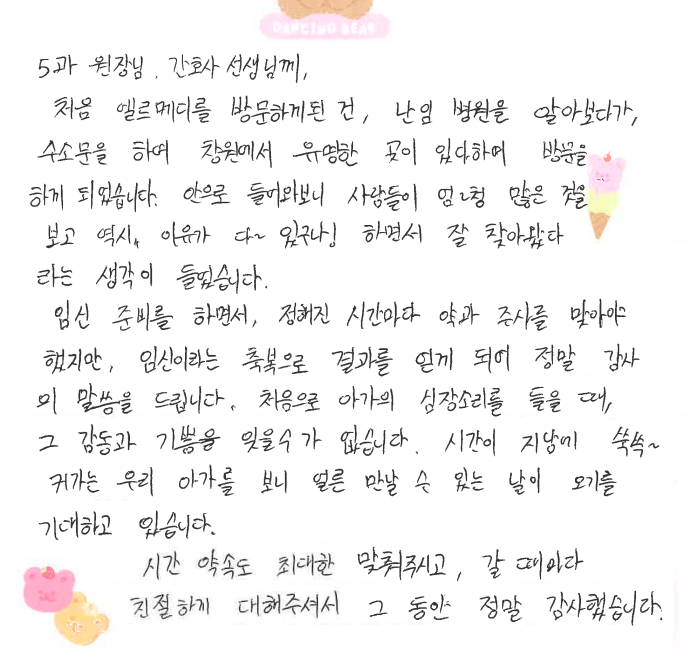 DANCING BEAR
5과 원장님, 간호사 선생님께,
처음 엘르메디를 방문하게된 건, 난임 병원을 알아보다가,
수소문을 하며 창원에서 유명한 곳이 있다하여 방문을
하게 되었습니다. 안으로 들어와보니 사람들이 엄~청 많은 것을
보고 역시, 이유가 다~ 있구나! 하면서 잘 찾아왔다
라는 생각이 들었습니다.
임신 준비를 하면서, 정해진 시간마다 약과 주사를 맞아야
했지만, 임신이라는 축복으로 결과를 얻게 되어 정말 감사
의 말씀을 드립니다. 처음으로 아가의 심장소리를 들을 때,
그 감동과 기쁨을 잊을수가 없습니다. 시간이 지남에 쑥쑥~
커가는 우리 아가를 보니 얼른 만날 수 있는 날이 오기를
기대하고 있습니다.
시간 약속도 최대한 맞춰주시고, 갈 때마다
친절하게 대해주셔서 그 동안 정말 감사했습니다.